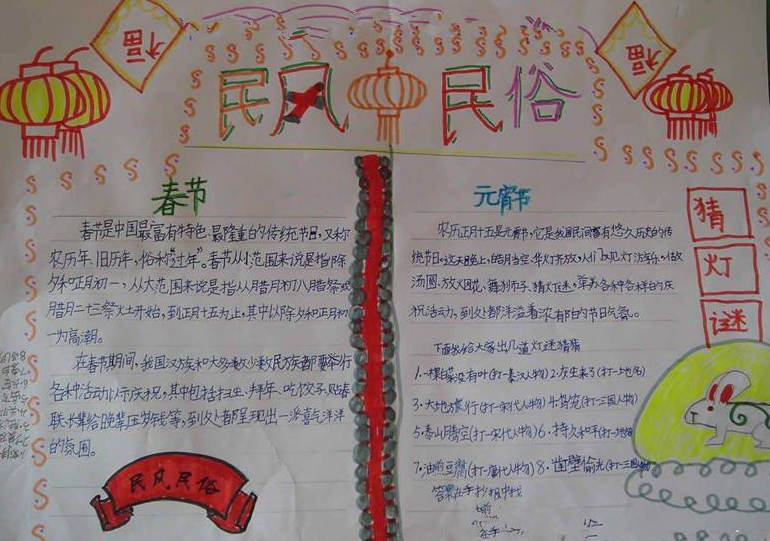 福
福
民风民俗
春节
春节是中国最富有特色、最隆重的传统节日,又称
农历年、旧历年,俗称"过年"。春节从小范围来说是指除
夕和正月初一,从大范围来说是指从腊月初八腊祭或
腊月二十三祭灶开始,到正月十五为止,其中以除夕和正月初
一为高潮。
在春节期间,我国汉族和大多数少数民族都要举行
各种活动以示庆祝,其中包括扫尘、拜年、吃饺子、贴春
联、大辈给晚辈压岁钱等,到处都呈现出一派喜气洋洋
的氛围。
民风民俗
元宵节
农历正月十五是元宵节,它是我国民间富有悠久历史的传
统节日。这天晚上,皓月当空,华灯齐放,人们
汤圆、放火因花、舞狮子、猜灯迷,举办各种各样的庆
祝活动,到处都洋溢着浓郁的节日气氛。
下面我给大家出几道灯迷猜猜
1.一棵菜没有叶(打一秦汉人物) 2.
3.大地旅行(打一宋代人物) 4.(打一三国人物)
5.泰山晴空(打一宋代人物) 6.持久和平(打一地名)
7.油煎豆腐(打一唐代人物) 8.凿壁偷光(打一三国人物)
答案在手抄报中找
猜
灯
谜